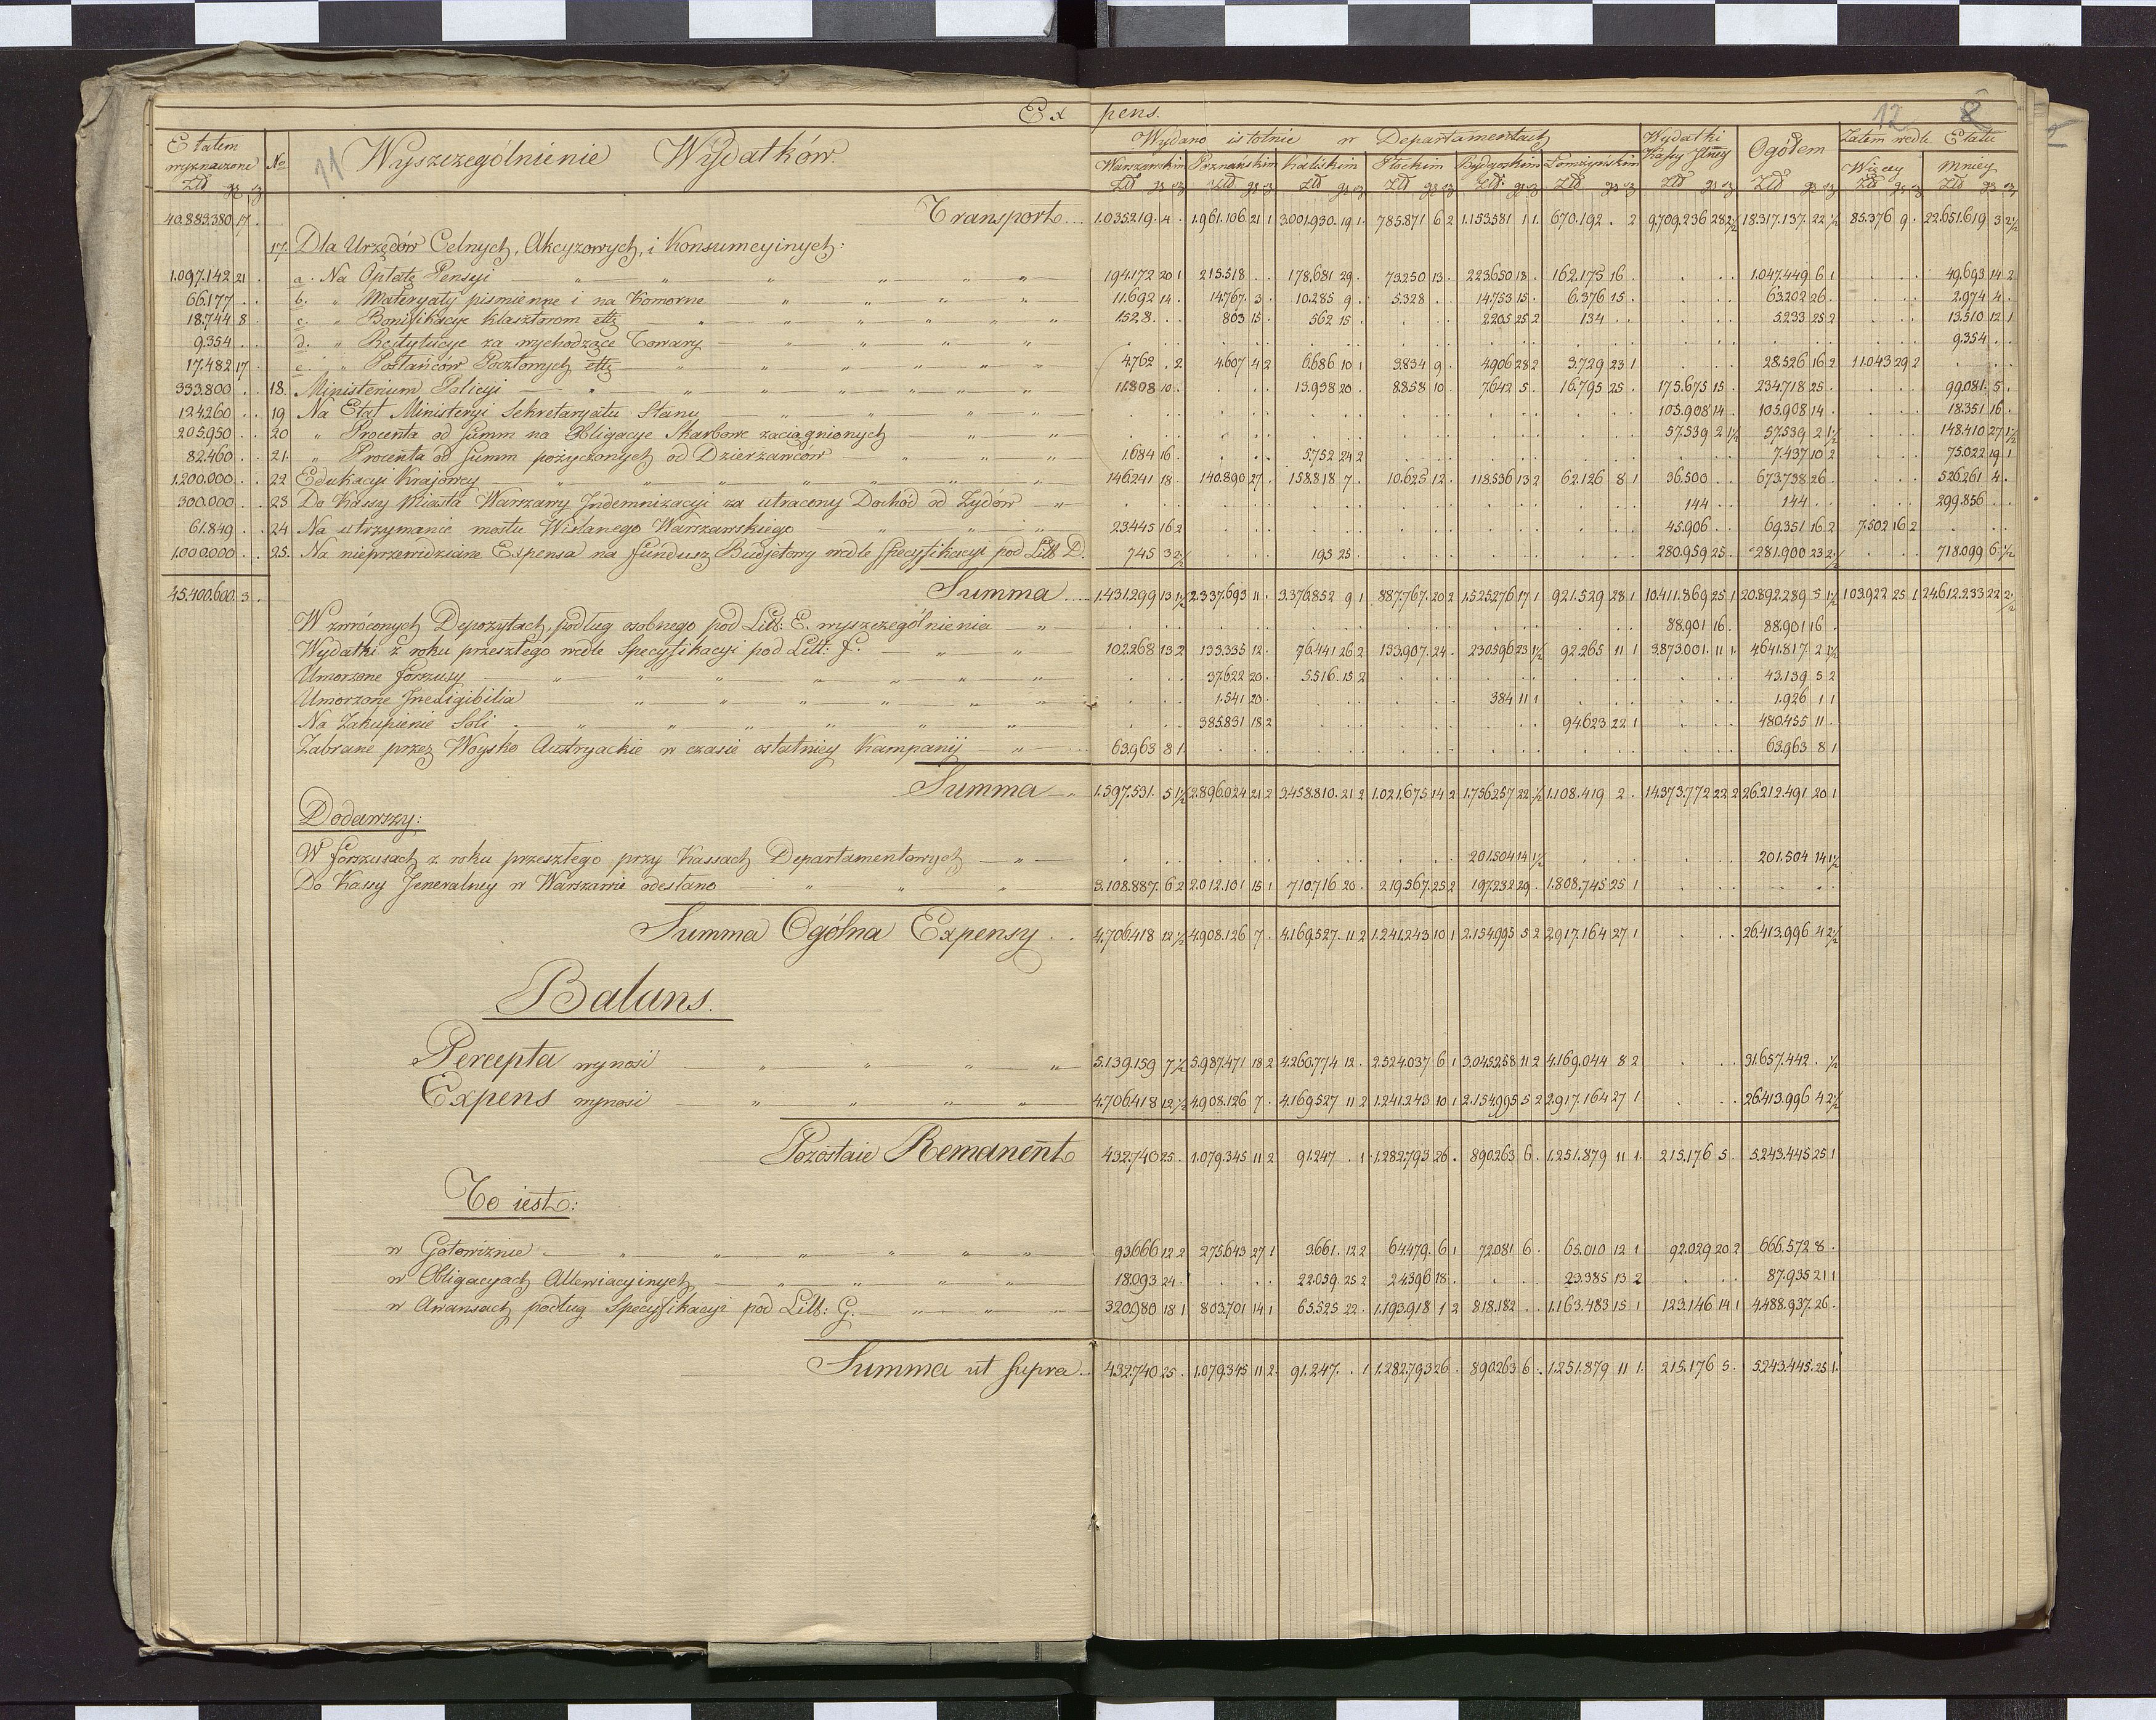 Expens.
11
12
8
Etatem wyznaczone No Wyszczególnienie Wydatków. Wydano istotnie w Departamentach Wydatki Kassy Jlney Ogółem Zatem wedle Etatu
Warszawskim Poznańskim Kaliskim Płockim Bydgoskim Łomżyńskim Więcey Mniey
Złł gr Złł gr Złł gr Złł gr Złł gr Złł gr Złł gr Złł gr Złł gr Złł gr Złł gr
40.883.380 17 . Transport 1.035.219. 4 . 1.961.106 21 1 3.001.930. 19 1 785.871 6 2 1.153.581 1 1. 670.192 . 2 9.709.236 28 2½ 18.317.137. 22 ½ 85.376 9 . 22.651.619 3 2½
17. Dla Urzędów Celnych, Akcyzowych, i Konsumcyinych:
1.097.142 21 . a. Na Opłatę Pensyi 194.172 20 1 215.518 . . 178.681 29 . 73.250 13 . 223.650 13 . 162.175 16 . . . . 1.047.449 6 1 . . . 49.693 14 2
66.177 . . b. " Materyały pismienne i na Komorne 11.692 14 . 14.767. 3 . 10.285 9 . 5.328 . . 14.753 15 . 6.376 15 . . . . 63.202 26 . . . . 2.974 4 .
18.744 8 . c. " Bonifikacye klasztorom ettc 1528 . . 803 15 . 562 15 . . . . 2.205 25 2 134 . . . . . 5.233 25 2 . . . 13.510 12 1
9.354 . . d. " Restytucye za wychodzące Towary . . . 9.354 . .
17.482 17 . e. " Posłańców Pocztowych ettc 4.762 . 2 4.607 4 2 6.686 10 1 3.834 9 . 4.906 28 2 3.729 23 1 . . . 28.526 16 2 11.043 29 2 . . .
333.800 . . 18. Ministerium Policyi 11.808 10 . . . . 13.938 20 . 8.858 10 . 7.642 5 . 16.795 25 . 175.675 15 . 234.718 25 . . . . 99.081. 5 .
124.260 . . 19 Na Etat Ministeryi Sekretaryatu Stanu 105.908 14 . 105.908 14 . . . . 18.351 16 .
205.950 . . 20 " Procenta od Summ na Obligacye Skarbowe zaciągnionych 57.539 2 1½ 57.539 2 1½ . . . 148.410 27 1½
82.460 . . 21. " Procenta od Summ pożyczonych od Dzierzawców 1.684 16 . . . . 5.752 24 2 . . . 7.437 10 2 . . . 75.022 19 1
1.200.000 . . 22 Edukacyi Krajowey 146.241 18 . 140.890 27 . 158.818 7 . 10.625 12 . 118.536 13 2 62.126 8 1 36.500 . . 673.738 26 . . . . 526.261 4 .
300.000 . . 23 Do Kassy Miasta Warszawy Indemnizacyi za utracony Dochód od Żydów 144 . . 144 . . . . . 299.856 . .
61.849 . . 24 Na utrzymanie mostu Wiślanego Warszawskiego 23.445 16 2 . . . 45.906 . . 69.351 16 2 7.502 16 2 . . .
1.000.000 . . 25. Na nieprzewidziane Expensa na fundusz Budjetowy wedle Specyfikacyi pod Litt D. 745 3 2½ . . . 195 25 . . . . 280.959 25 . 281.900 23 2½ . . . 718.099 6 ½
45.400.600. 3 . Summa 1.431.299 13 1½ 2.337.693 11 . 3.376.852 9 1 887.767. 20 2 1.525.276 17 1 921.529 28 1 10.411.869 25 1 20.892.289 5 1½ 103.922 25 1 24.612.233 22 2½
W zwróconych Depozytach, podług osobnego pod Litt: E. wyszczególnienia 88.901 16 . 88.901 16 .
Wydatki z roku przeszłego wedle Specyfikacyi pod Litt: F. 102.268 13 2 133.335 12 . 76.441 26 2 133.907. 24 . 230.596 23 1½ 92.265 11 1 3.873.001. 11 1 4.641.817. 2 1½
Umorzone forszusy . . . 37.622 20 . 5.516. 15 2 . . . 43.139 5 2
Umorzone Inexigibilia . . . 1.541 20 . . . . 384 11 1 . . . 1.926 1 1
Na Zakupienie Soli . . . 385.831 18 2 . . . 94.623 22 1 . . . 480.455 11 .
Zabrane przez Woysko Austryackie w czasie ostatniey Kampanij 63.963 8 1 . . . 63.963 8 1
Summa 1.597.531. 5 1½ 2.896.024 21 2 3.458.810. 21 2 1.021.675 14 2 1.756.257 22 ½ 1.108.419 2 . 14.373.772 22 2 26.212.491 20 1
Dodawszy:
W forszusach z roku przeszłego przy Kassach Departamentowych 201.504 14 1½ . . . 201.504 14 1½
Do Kassy Jeneralney w Warszawie odesłano 3.108.887. 6 2 2.012.101 15 1 710.716 20 . 219.567. 25 2 197.232 29 . 1.808.745 25 1 . . .
Summa Ogólna Expensy 4.706.418 12 ½ 4.908.126 7 . 4.169.527. 11 2 1.241.243 10 1 2.154.995 5 2 2.917.164 27 1 . . . 26.413.996 4 2½
Balans.
Percepta wynosi 5.139.159 7 ½ 5.987.471 18 2 4.260.774 12 . 2.524.037 6 1 3.045.258 11 2 4.169.044 8 2 . . . 31.657.442 . ½
Expens wynosi 4.706.418 12 ½ 4.908.126 7 . 4.169.527 11 2 1.241.243 10 1 2.154.995 5 2 2.917.164 27 1 . . . 26.413.996 4 2½
Pozostaie Remanent 432.740 25 . 1.079.345 11 2 91.247 . 1 1.282.793 26 . 890.263 6 . 1.251.879 11 1 215.176 5 . 5.243.445 25 1
To iest:
w Gotowiznie 93.666 12 2 275.643 27 1 3.661. 12 2 64.479. 6 1 72.081 6 . 65.010 12 1 92.029 20 2 666.572 8 .
w Obligacyach Allewiacyinych 18.093 24 . . . . 22.059. 25 2 24.396 18 . . . . 23.385 13 2 . . . 87.935 21 1
w Awansach podług Specyfikacyi pod Litt: G. 320.980 18 1 803.701 14 1 65.525 22 . 1.193.918 1 2 818.182 . . 1.163.483 15 1 123.146 14 1 4.488.937. 26 .
Summa ut Supra 432.740 25 . 1.079.345 11 2 91.247. . 1 1.282.793 26 . 890.263 6 . 1.251.879 11 1 215.176 5 . 5.243.445. 25 1